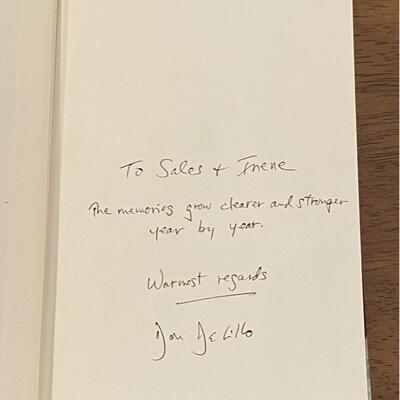 To Sales + Irene
The memories grow clearer and stronger
year by year.
Warmest regards
Don DeLillo